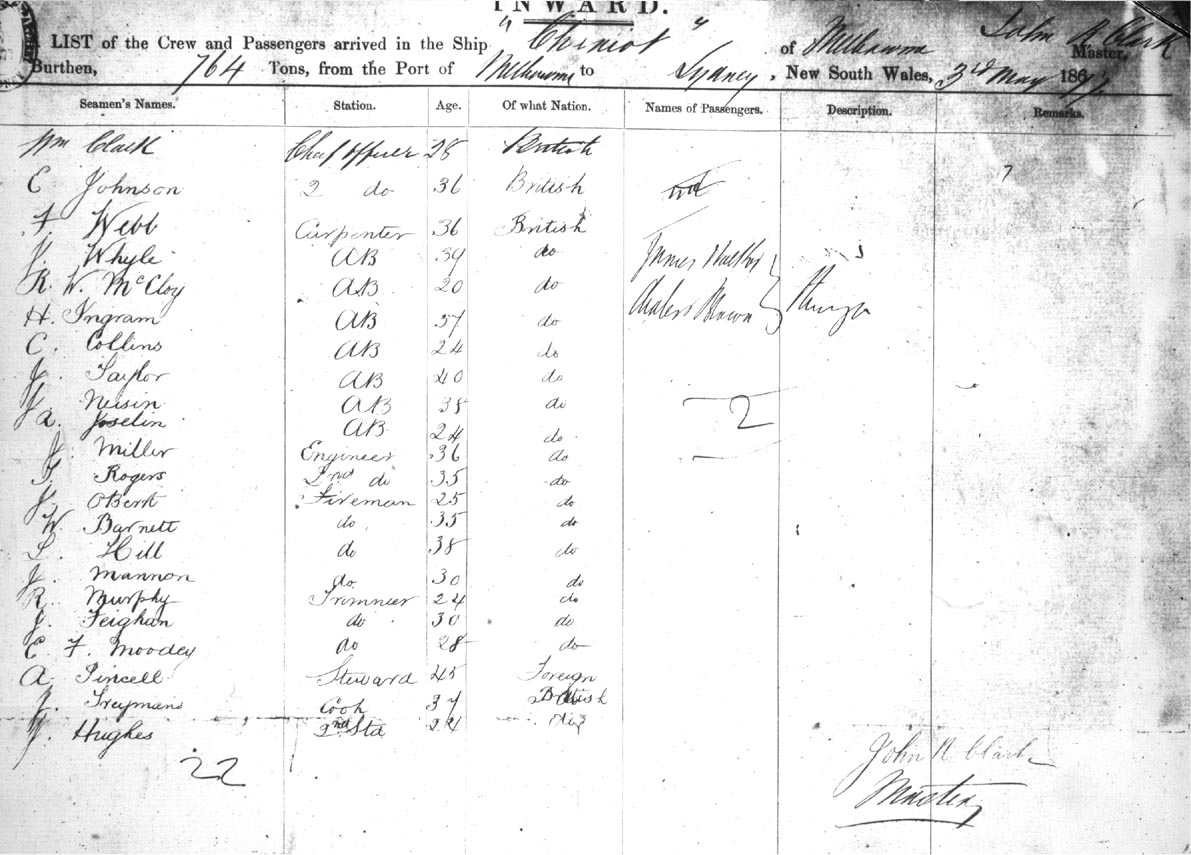 INWARD.
LIST of the Crew and Passengers arrived in the Ship " Cheviot " of Melbourne John R Clark Master,
Burthen, 764 Tons, from the Port of Melbourne to Sydney, New South Wales, 3rd May 1867
Seamen's Names. Station. Age. Of what Nation. Names of Passengers. Description. Remarks.
Wm Clark Chief Officer 28 British
E Johnson 2 do 36 British
F. Webb Carpenter 36 British
J. Whyle AB 39 do
R. W. McCloy AB 20 do James
H. Ingram AB 57 do Brown
C. Collins AB 24 do
J. Taylor AB 40 do
J. Neisin AB 38 do 2
A. Joselin AB 24 do
J. Miller Engineer 36 do
T. Rogers 2nd do 35 do
Fireman 25 do
W. Barnett do 35 do
S. Hill do 38 do
J. Mannon do 30 do
R. Murphy Trimmer 24 do
J. Feighan do 30 do
E. F. Moodey do 28 do
A. Pincell Steward 45 Foreign
J. Freymans Cook 37 British
Hughes 2nd Std 24
22
John R Clark
Master